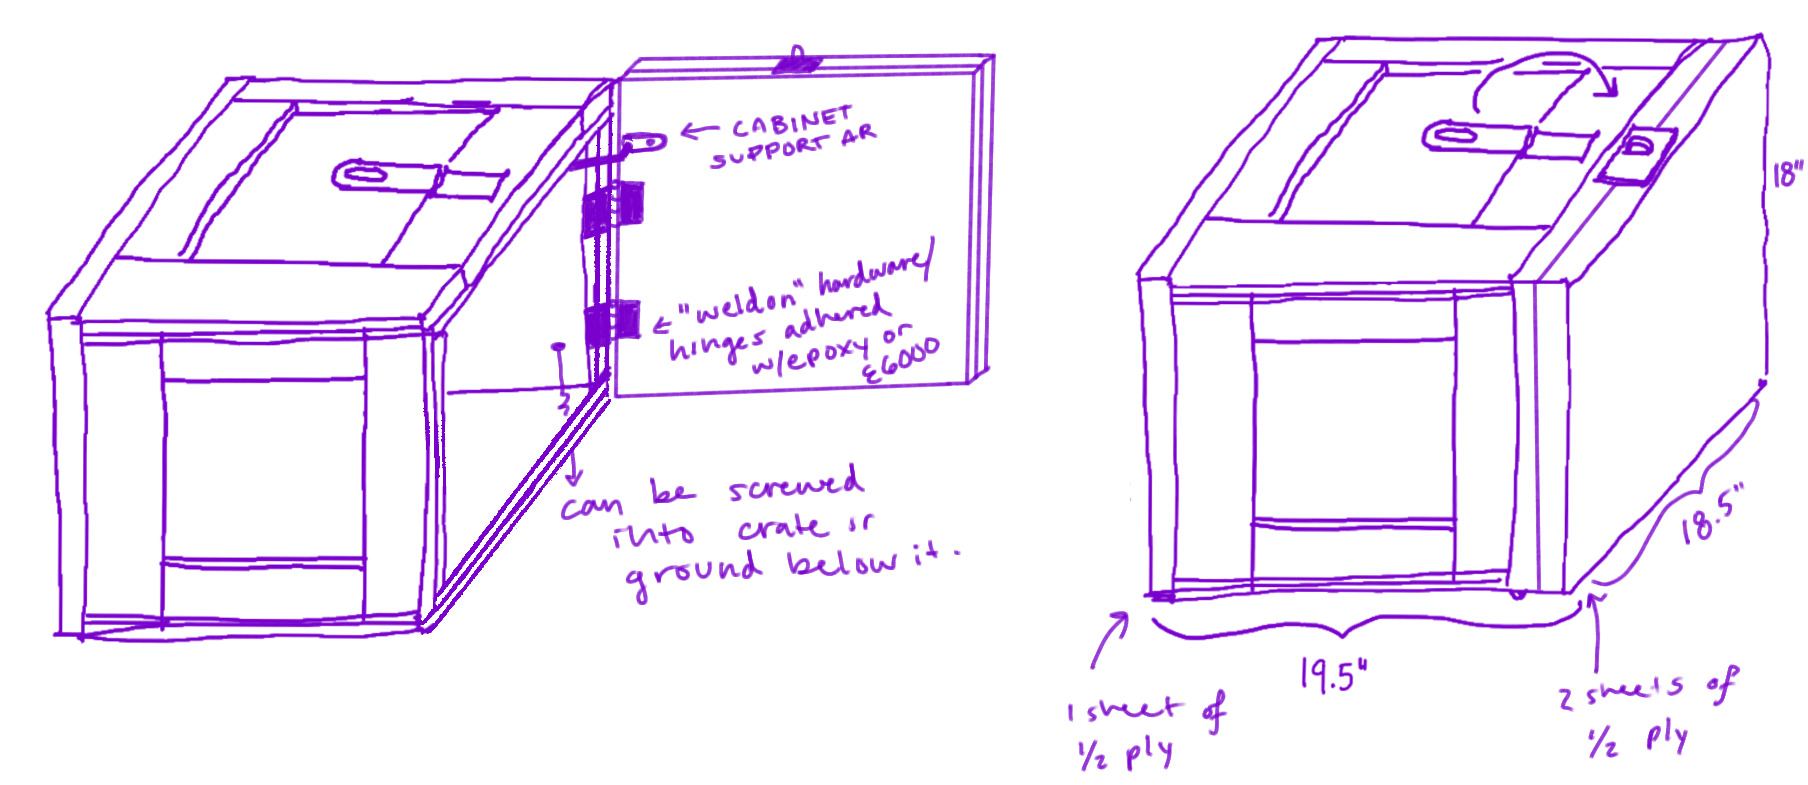 ← CABINET
SUPPORT AR
← "weldon" hardware/
hinges adhered
w/epoxy or
E6000
can be screwed
into crate or
ground below it.
18"
18.5"
19.5"
1 sheet of
1/2 ply
2 sheets of
1/2 ply